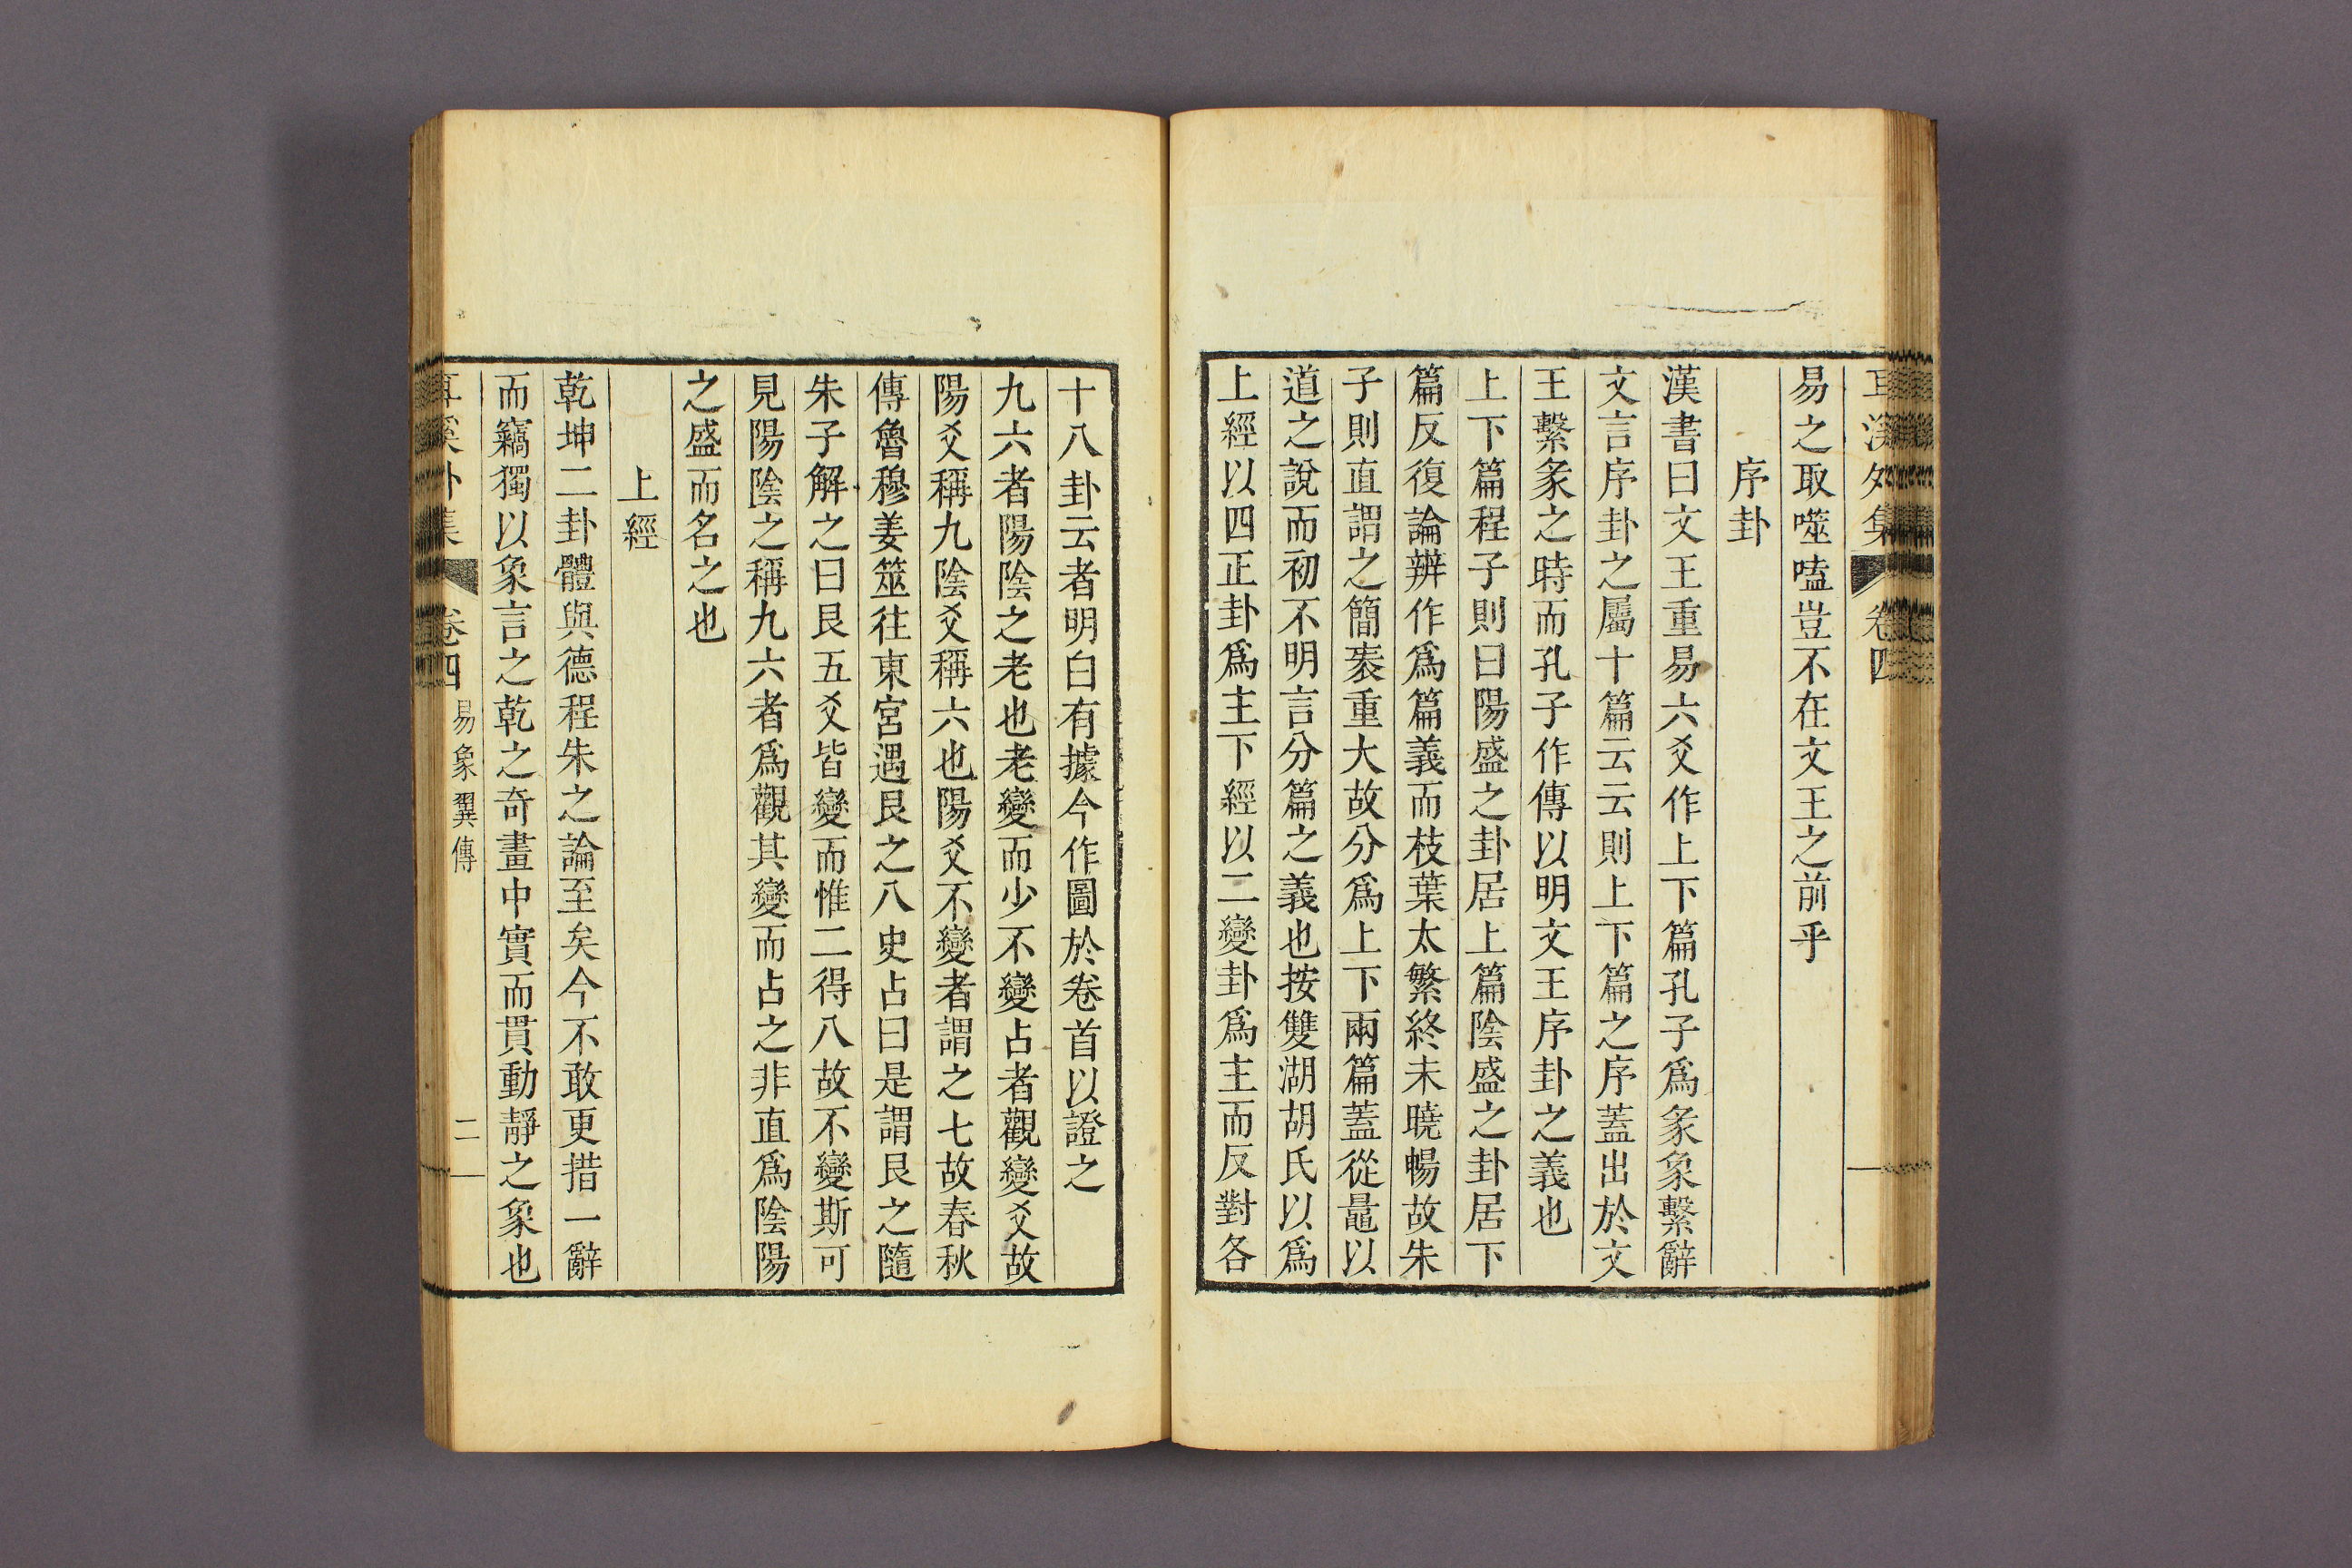 耳溪外集 卷四
易之取噬嗑豈不在文王之前乎
序卦
漢書曰文王重易六爻作上下篇孔子爲彖象繫辭
文言序卦之屬十篇云云則上下篇之序蓋出於文
王繫彖之時而孔子作傳以明文王序卦之義也
上下篇程子則曰陽盛之卦居上篇陰盛之卦居下
篇反復論辨作爲篇義而枝葉太繁終未曉暢故朱
子則直謂之簡袠重大故分爲上下兩篇蓋從鼂以
道之說而初不明言分篇之義也按雙湖胡氏以爲
上經以四正卦爲主下經以二變卦爲主而反對各
十八卦云者明白有據今作圖於卷首以證之
九六者陽陰之老也老變而少不變占者觀變爻故
陽爻稱九陰爻稱六也陽爻不變者謂之七故春秋
傳魯穆姜筮往東宮遇艮之八史占曰是謂艮之隨
朱子解之曰艮五爻皆變而惟二得八故不變斯可
見陽陰之稱九六者爲觀其變而占之非直爲陰陽
之盛而名之也
上經
乾坤二卦體與德程朱之論至矣今不敢更措一辭
而竊獨以象言之乾之奇畫中實而貫動靜之象也
耳溪外集 卷四 易象翼傳 二